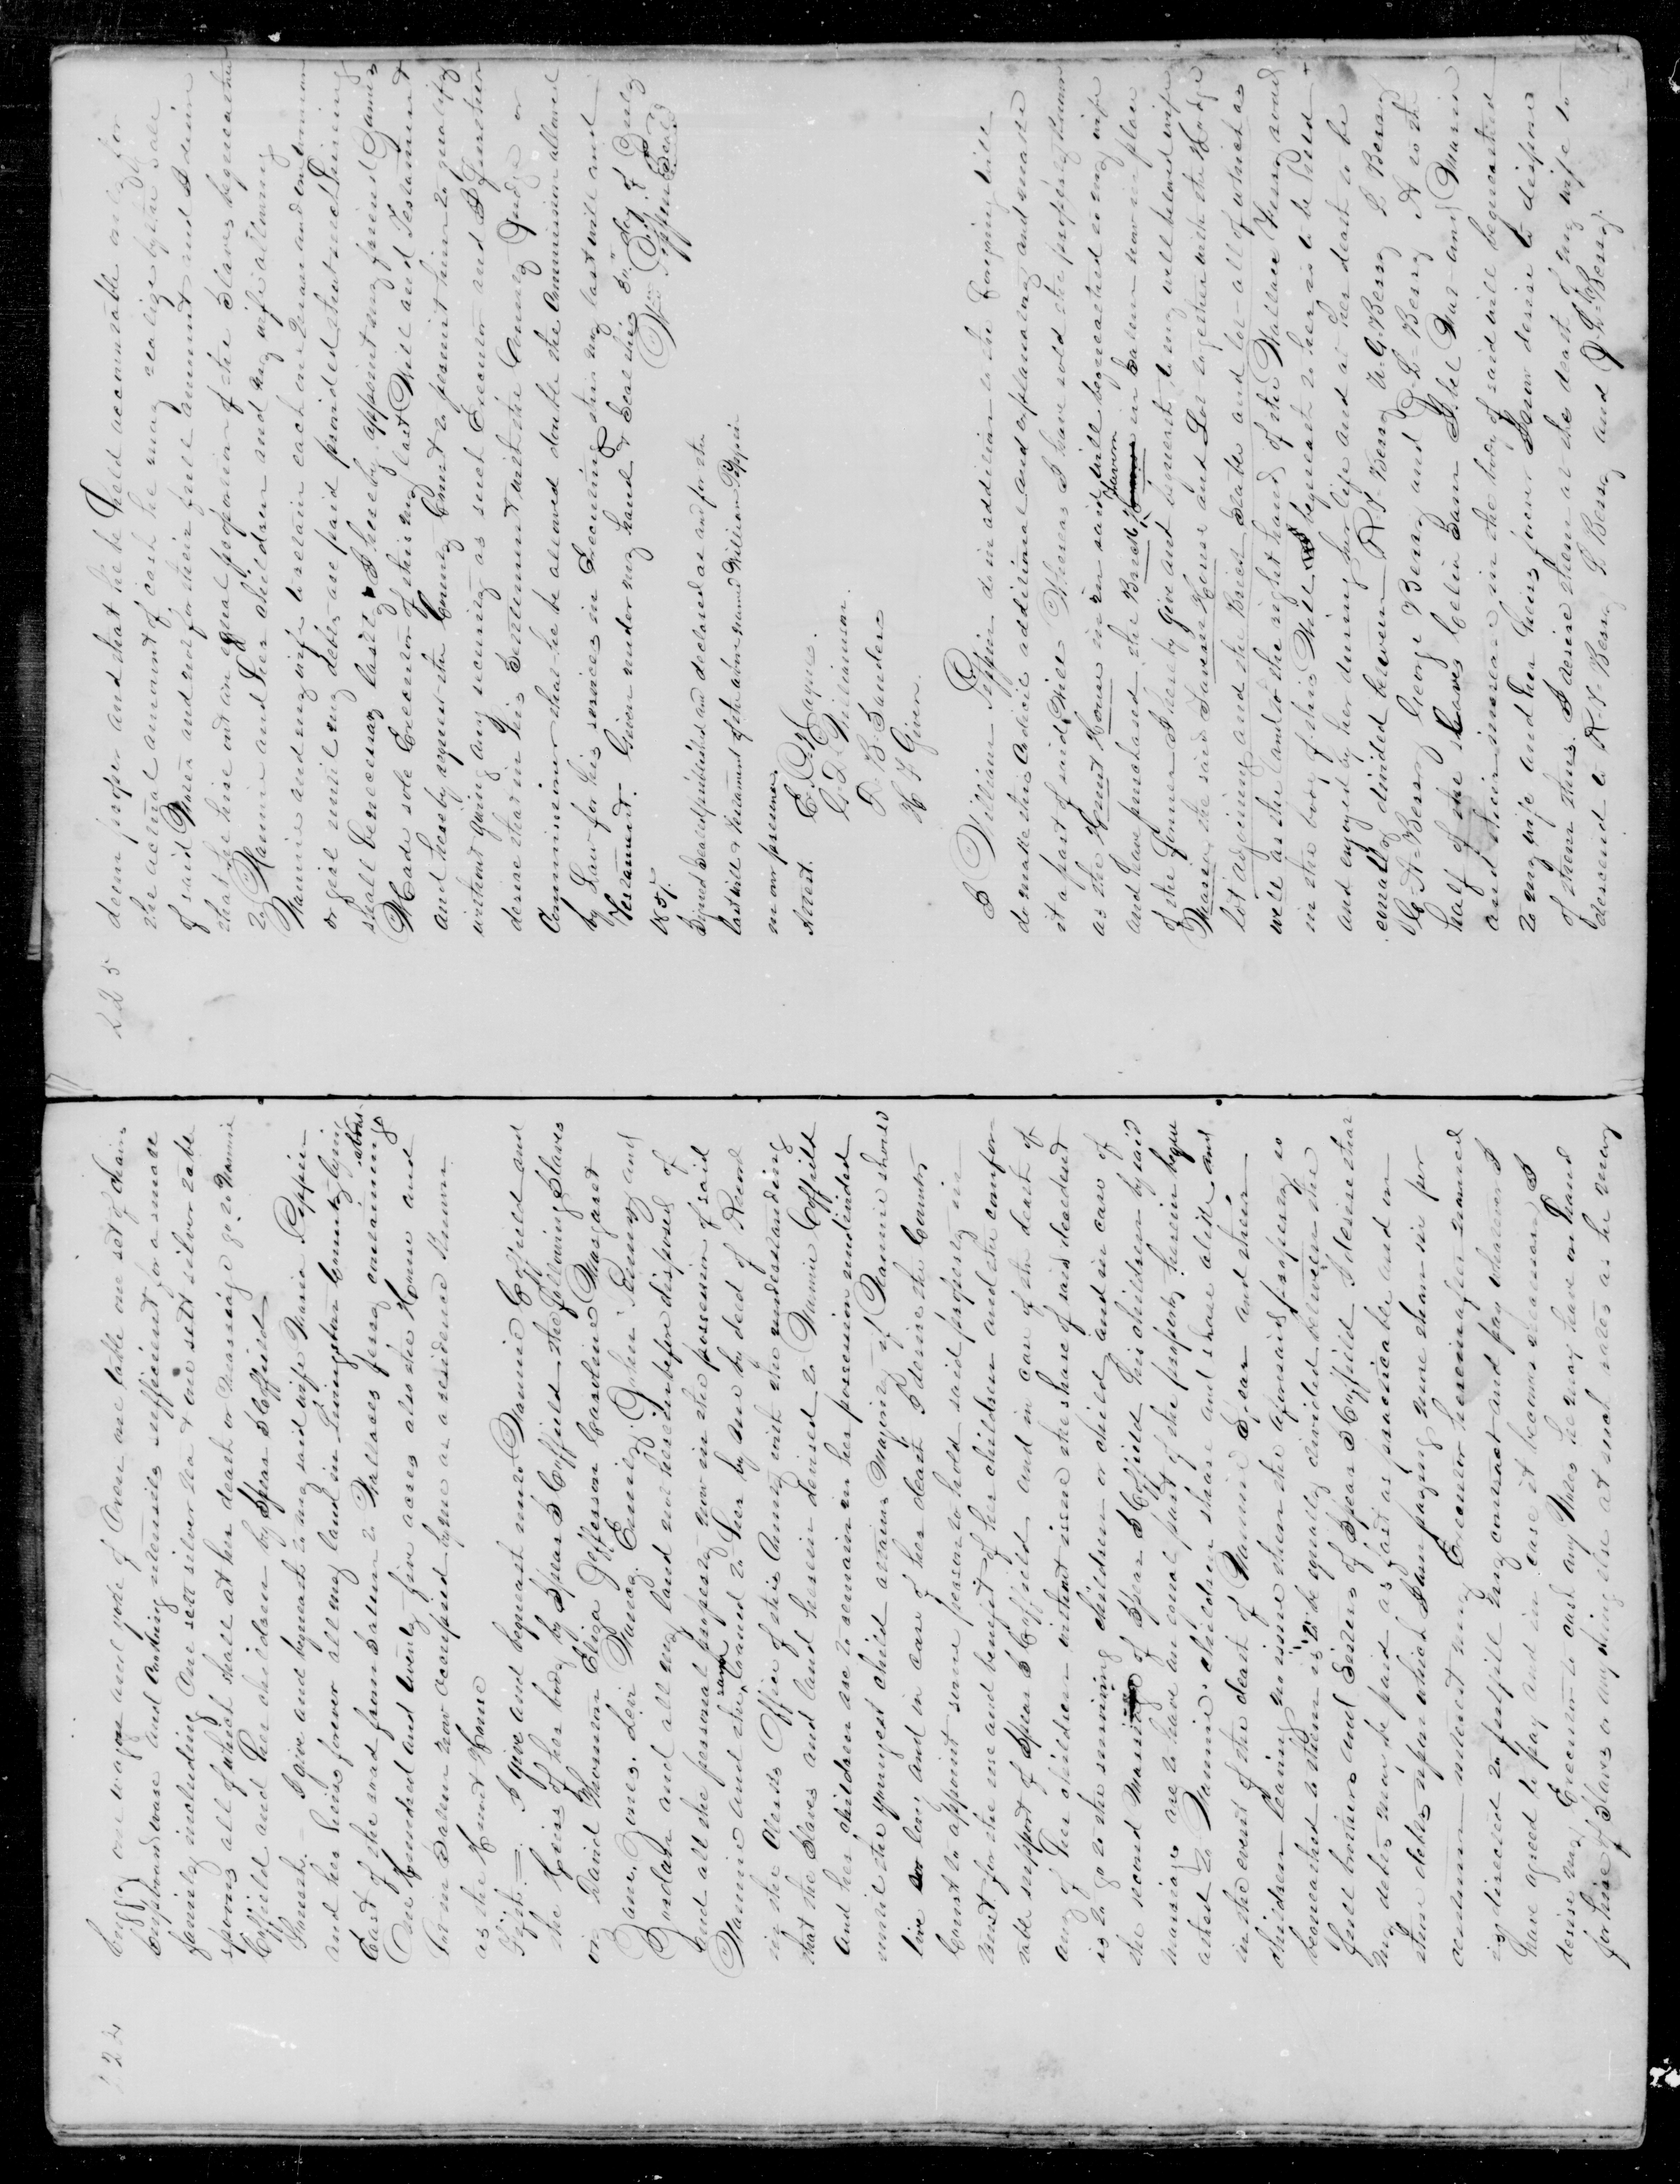 224
buggy one wagon and yoke of Oxen one table one set of chairs
cupboard ware and cooking utensils sufficient for a small
family including one sett silver tea & one sett silver table
spoons all of which shall at her death or marriage go to Nannie
Coffield and her children by Spear S Coffield
Fourth. I give and bequeath to my said wife Maria Leppin
and her heirs forever all my land in Livingston County lying
East of the road from Salem to Wallaces ferry containing about
One hundred and twenty five acres also the House and
Lot in Salem now occupied by me as a residence known
as the House
Fifth = I give and bequeath unto Nannie Coffield and
the Heirs of her body by Spear S Coffield the following Slaves
viz David Thornton Eliza Jefferson Caroline Margaret
Jane James Levi Nancy Emily John Penny and
and all my land not heretofore disposed of
and all the personal property now in the possession of said
Nannie and the same loaned to her by me by deed of Record
in the Clerks Office of this County with the understanding
that the Slaves and land herein devised to Nannie Coffield
and her children are to remain in her possession undivided
until the youngest child attains Majority if Nannie should
live so long and in case of her death I desire the County
Court to appoint some person to hold said property in
trust for the use and benefit of her children and the comfor
table support of Spear S Coffield and in case of the death of
any of her children without issue the share of said decedent
is to go to the surviving children or child and in case of
the second Marriage of Spear S Coffield his children by said
marriage are to have an equal part of the property herein beque
athed to Nannie's children share and share alike and
in the event of the death of Nannie Spear and their
children leaving no issue then the aforesaid property is
bequeathed to them is to be equally divided between the
full brothers and Sisters of Spear S Coffield I desire that
my debts may be paid as fast as practicable and on
such debts upon which I am paying more than six per
centum interest my Executor hereinafter named
is directed to fulfill my contract and pay whatever I
have agreed to pay and in case it becomes necessary I
desire my Executor to cash any Notes he may have on hand
for hire of Slaves or any thing else at such rates as he may
225
deem proper and that he be held accountable only for
the actual amount of cash he may realize by the sale
of said Notes and not for their full amount and I desire
that he hire out an equal proportion of the Slaves bequeathed
to Nannie and her children and my wife allowing
Nannie and my wife to retain each one man and one woman
or girl until my debts are paid provided that such hiring
shall be necessary lastly I hereby appoint my friend James
Hodge sole Executor of this my last Will and Testament
and hereby request the County Court to permit him to qualify
without giving any security as such Executor and I further
desire that in his Settlement with the County Judge or
Commissioner that he be allowed double the commission allowed
by Law for his services in Executing this my last will and
Testament. Given under my hand & Seal this 8th day of July
1857.
Signed Sealed published and declared as and for the
last will & testament of the above named William Leppin
in our presence
Attest.
D. B. Sanders
H F Given.
I William Leppin do in addition to the foregoing will
do make this Codicil additional and explanatory and make
it a part of said Will Whereas I have sold the property known
as the House in said will bequeathed to my wife
and have purchased the Tavern in Salem now in place
of the former I hereby give and bequeath to my well beloved wife
Maria the said Tavern House and Lot together with the Hodge
lot adjoining and the Brick Stable and lot all of which as
well as the land to the right hand of the Wallace Ferry road
in the body of this Will I bequeath to her as to be held
and enjoyed by her during her life and at her death to be
equally divided between R. F. Berry W G Berry L Berry
C A Berry George Berry and J L Berry As to the
half of the Slaves Celia Sam Ethel Mar and Maria
and their increase in the body of said will bequeathed
to my wife and her heirs forever I now desire to dispose
of them thus. I desire them at the death of my wife to
descend to R. F. Berry L Berry and J L Berry